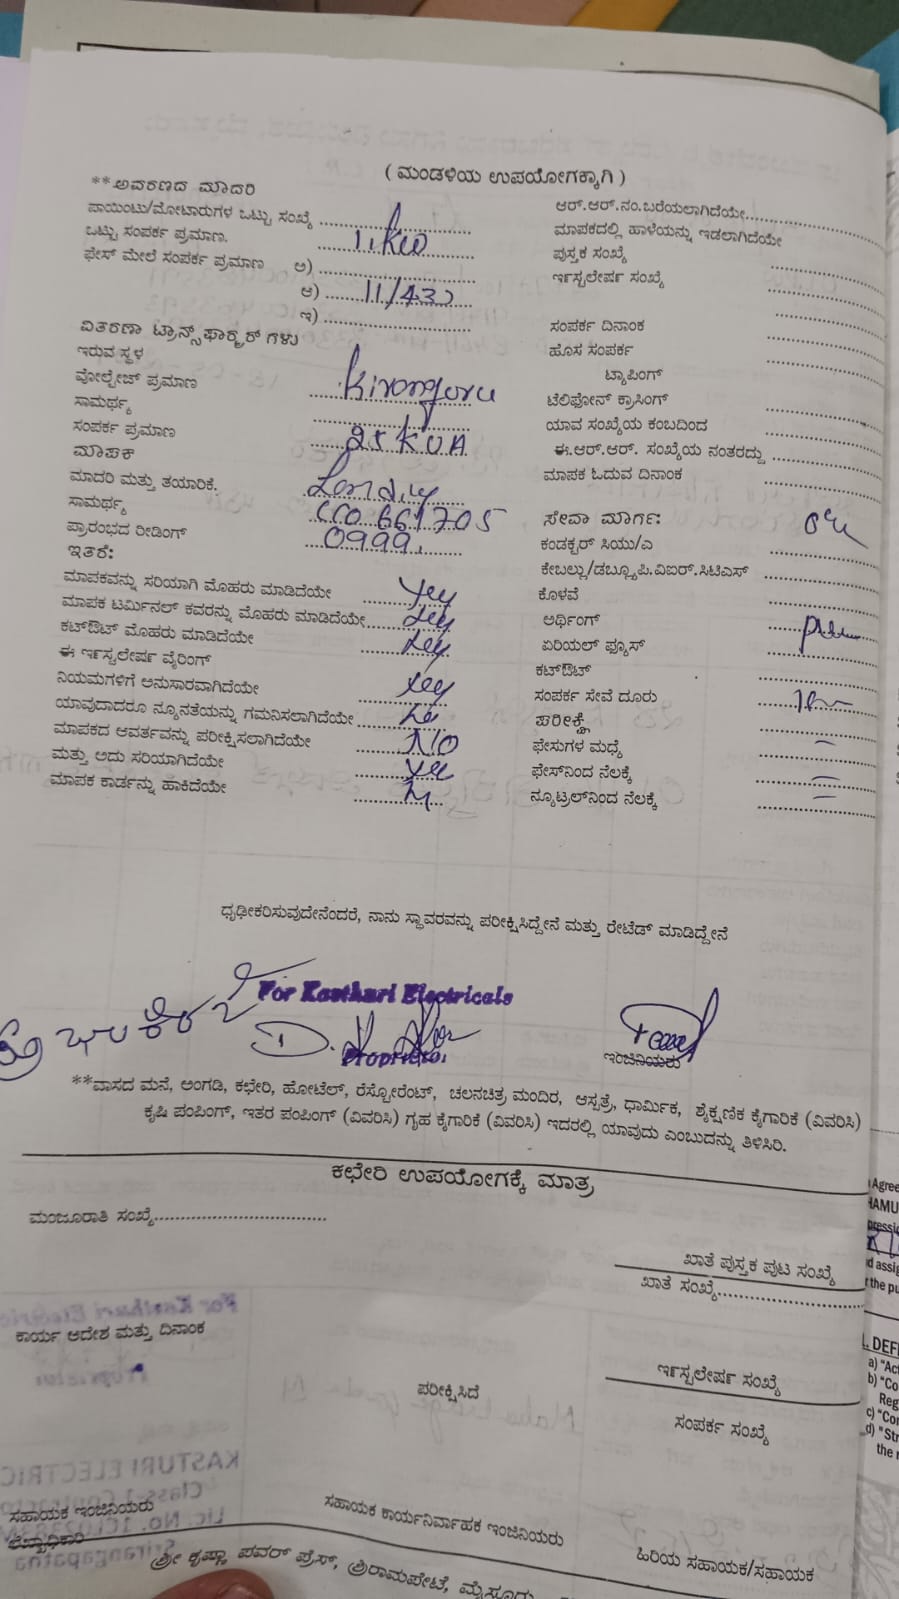 ( ಮಂಡಳಿಯ ಉಪಯೋಗಕ್ಕಾಗಿ )
**ಆವರಣದ ಮಾದರಿ
ಪಾಯಿಂಟು/ಮೋಟಾರುಗಳ ಒಟ್ಟು ಸಂಖ್ಯೆ
ಒಟ್ಟು ಸಂಪರ್ಕ ಪ್ರಮಾಣ.
ಫೇಸ್ ಮೇಲೆ ಸಂಪರ್ಕ ಪ್ರಮಾಣ ಅ)
ಆ) 11/433
ಇ)
ವಿತರಣಾ ಟ್ರಾನ್ಸ್‌ಫಾರ್ಮರ್‌ಗಳು
ಇರುವ ಸ್ಥಳ
ವೋಲ್ಟೇಜ್ ಪ್ರಮಾಣ
ಸಾಮರ್ಥ್ಯ
ಸಂಪರ್ಕ ಪ್ರಮಾಣ 25 KVA
ಮಾಪಕ
ಮಾದರಿ ಮತ್ತು ತಯಾರಿಕೆ.
ಸಾಮರ್ಥ್ಯ 661705
ಪ್ರಾರಂಭದ ರೀಡಿಂಗ್ 0999
ಇತರೆ:
ಮಾಪಕವನ್ನು ಸರಿಯಾಗಿ ಮೊಹರು ಮಾಡಿದೆಯೇ yes
ಮಾಪಕ ಟರ್ಮಿನಲ್ ಕವರನ್ನು ಮೊಹರು ಮಾಡಿದೆಯೇ yes
ಕಟ್‌ಔಟ್ ಮೊಹರು ಮಾಡಿದೆಯೇ yes
ಈ ಇನ್‌ಸ್ಟಲೇಷನ್ ವೈರಿಂಗ್
ನಿಯಮಗಳಿಗೆ ಅನುಸಾರವಾಗಿದೆಯೇ yes
ಯಾವುದಾದರೂ ನ್ಯೂನತೆಯನ್ನು ಗಮನಿಸಲಾಗಿದೆಯೇ
ಮಾಪಕದ ಆವರ್ತವನ್ನು ಪರೀಕ್ಷಿಸಲಾಗಿದೆಯೇ NO
ಮತ್ತು ಅದು ಸರಿಯಾಗಿದೆಯೇ yes
ಮಾಪಕ ಕಾರ್ಡನ್ನು ಹಾಕಿದೆಯೇ
ಆರ್.ಆರ್.ನಂ.ಬರೆಯಲಾಗಿದೆಯೇ
ಮಾಪಕದಲ್ಲಿ ಹಾಳೆಯನ್ನು ಇಡಲಾಗಿದೆಯೇ
ಪುಸ್ತಕ ಸಂಖ್ಯೆ
ಇನ್‌ಸ್ಟಲೇಷನ್ ಸಂಖ್ಯೆ
ಸಂಪರ್ಕ ದಿನಾಂಕ
ಹೊಸ ಸಂಪರ್ಕ
ಟ್ಯಾಪಿಂಗ್
ಟೆಲಿಫೋನ್ ಕ್ರಾಸಿಂಗ್
ಯಾವ ಸಂಖ್ಯೆಯ ಕಂಬದಿಂದ
ಈ.ಆರ್.ಆರ್. ಸಂಖ್ಯೆಯ ನಂತರದ್ದು
ಮಾಪಕ ಓದುವ ದಿನಾಂಕ
ಸೇವಾ ಮಾರ್ಗ:
ಕಂಡಕ್ಟರ್ ಸಿಯು/ಎ
ಕೇಬಲ್ಲು/ಡಬ್ಲ್ಯೂ.ಪಿ.ವಿಐಆರ್.ಸಿಟಿಎಸ್
ಕೊಳವೆ
ಅರ್ಥಿಂಗ್
ಏರಿಯಲ್ ಫ್ಯೂಸ್
ಕಟ್‌ಔಟ್
ಸಂಪರ್ಕ ಸೇವೆ ದೂರು
ಪರೀಕ್ಷೆ
ಫೇಸುಗಳ ಮಧ್ಯೆ
ಫೇಸ್‌ನಿಂದ ನೆಲಕ್ಕೆ
ನ್ಯೂಟ್ರಲ್‌ನಿಂದ ನೆಲಕ್ಕೆ
ಧೃಢೀಕರಿಸುವುದೇನೆಂದರೆ, ನಾನು ಸ್ಥಾವರವನ್ನು ಪರೀಕ್ಷಿಸಿದ್ದೇನೆ ಮತ್ತು ರೇಟೆಡ್ ಮಾಡಿದ್ದೇನೆ
For Kasthuri Electricals
Proprietor
ಇಂಜಿನಿಯರು
**ವಾಸದ ಮನೆ, ಅಂಗಡಿ, ಕಛೇರಿ, ಹೋಟೆಲ್, ರೆಸ್ಟೋರೆಂಟ್, ಚಲನಚಿತ್ರ ಮಂದಿರ, ಆಸ್ಪತ್ರೆ, ಧಾರ್ಮಿಕ, ಶೈಕ್ಷಣಿಕ ಕೈಗಾರಿಕೆ (ವಿವರಿಸಿ)
ಕೃಷಿ ಪಂಪಿಂಗ್, ಇತರ ಪಂಪಿಂಗ್ (ವಿವರಿಸಿ) ಗೃಹ ಕೈಗಾರಿಕೆ (ವಿವರಿಸಿ) ಇದರಲ್ಲಿ ಯಾವುದು ಎಂಬುದನ್ನು ತಿಳಿಸಿರಿ.
ಕಛೇರಿ ಉಪಯೋಗಕ್ಕೆ ಮಾತ್ರ
ಮಂಜೂರಾತಿ ಸಂಖ್ಯೆ
ಖಾತೆ ಪುಸ್ತಕ ಪುಟ ಸಂಖ್ಯೆ
ಖಾತೆ ಸಂಖ್ಯೆ
ಕಾರ್ಯ ಆದೇಶ ಮತ್ತು ದಿನಾಂಕ
ಪರೀಕ್ಷಿಸಿದೆ
ಇನ್‌ಸ್ಟಲೇಷನ್ ಸಂಖ್ಯೆ
ಸಂಪರ್ಕ ಸಂಖ್ಯೆ
ಸಹಾಯಕ ಇಂಜಿನಿಯರು
ಸಹಾಯಕ ಕಾರ್ಯನಿರ್ವಾಹಕ ಇಂಜಿನಿಯರು
ಹಿರಿಯ ಸಹಾಯಕ/ಸಹಾಯಕ
ಶ್ರೀ ಕೃಷ್ಣಾ ಪವರ್ ಪ್ರೆಸ್, ಶ್ರೀರಾಮಪೇಟೆ, ಮೈಸೂರು